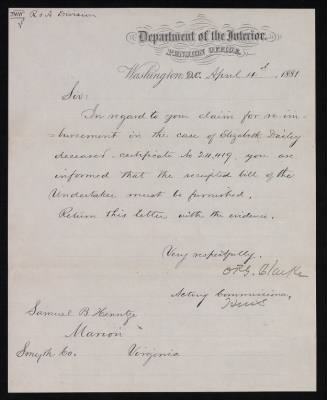 R & A Division
Department of the Interior,
PENSION OFFICE,
Washington, D.C. April 11th, 1881
Sir:
In regard to your claim for re-im-
-bursement in the case of Elizabeth Dailey
deceased certificate No 24,419, you are
informed that the receipted bill of the
Undertaker must be furnished.
Return this letter with the evidence.
Very respectfully,
O.P.G. Clarke
Acting Commissioner,
Samuel B. Henritze
Marion
Smyth Co. Virginia